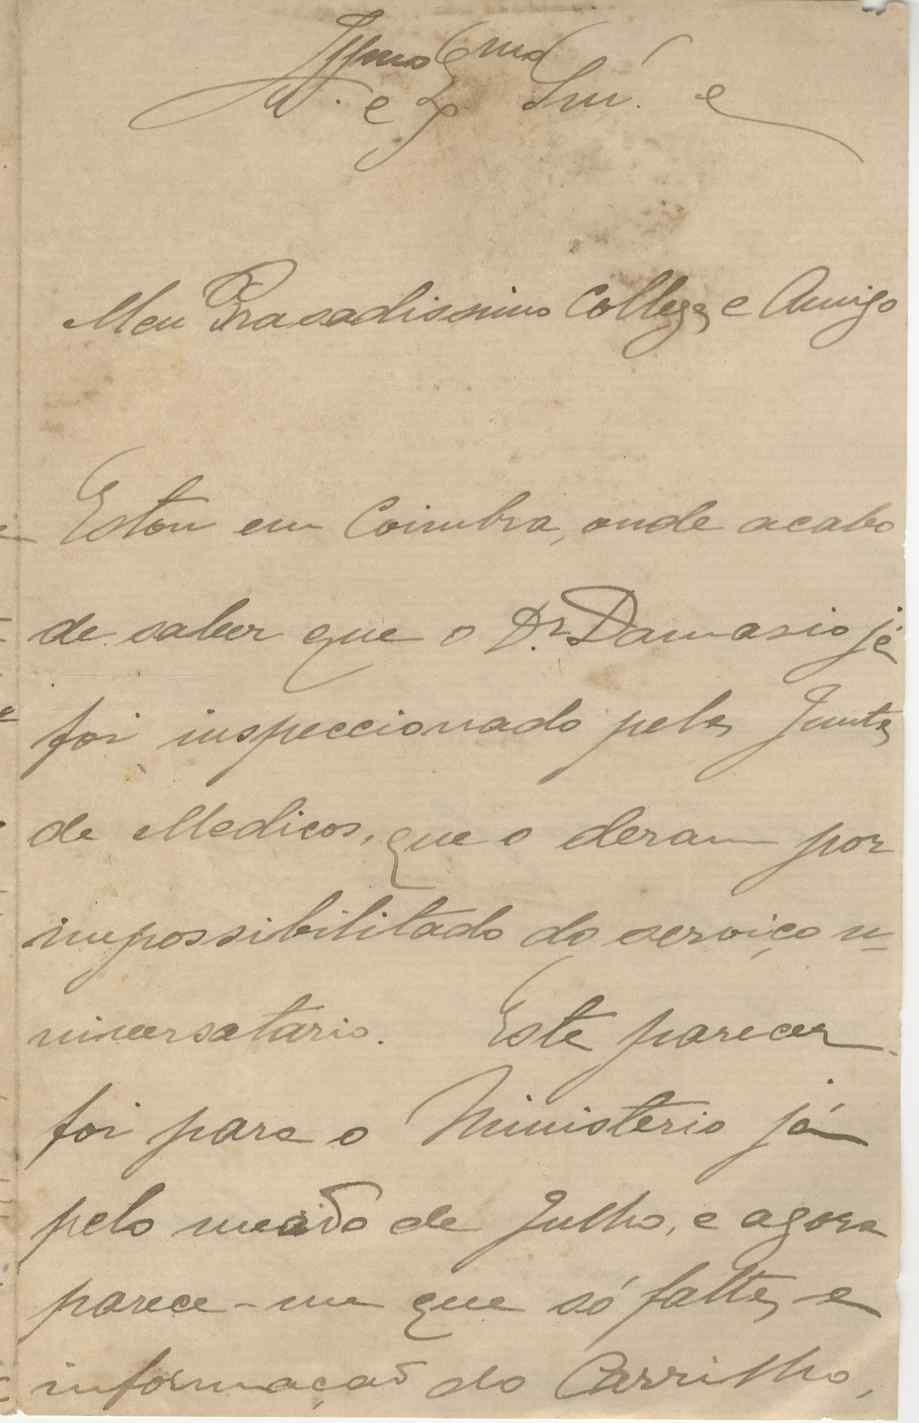 Illmo Exmo
Snr.
Meu Presadissimo Collega e Amigo
Estou em Coimbra, onde acabo
de saber que o Dr. Damasio já
foi inspeccionado pela Junta
de Medicos, que o deram por
impossibilitado do serviço u=
niversatario. Este parecer
foi para o Ministerio já
pelo meado de Julho, e agora
parece-me que só falta a
informação do Carrilho,